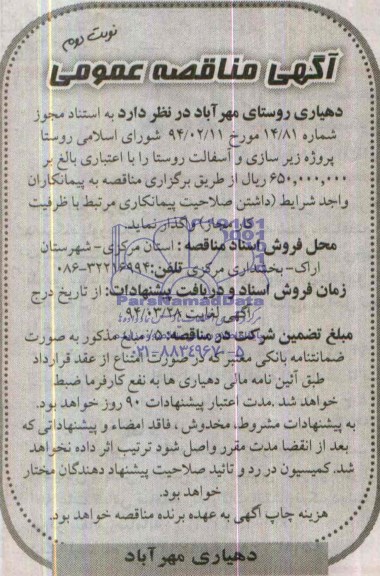 نوبت دوم
آگهی مناقصه عمومی
دهیاری روستای مهرآباد در نظر دارد به استناد مجوز
شماره ۱۴/۸۱ مورخ ۹۴/۰۲/۱۱ شورای اسلامی روستا
پروژه زیر سازی و آسفالت روستا را با اعتباری بالغ بر
۶۵۰,۰۰۰,۰۰۰ ریال از طریق برگزاری مناقصه به پیمانکاران
واجد شرایط (داشتن صلاحیت پیمانکاری مرتبط با ظرفیت
کار مجاز) واگذار نماید.
محل فروش اسناد مناقصه: استان مرکزی- شهرستان
اراک- بخشداری مرکزی تلفن: ۳۲۲۱۶۹۹۴-۰۸۶
زمان فروش اسناد و دریافت پیشنهادات: از تاریخ درج
ParsNamadData
آگهی لغایت ۹۴/۰۳/۲۸
مبلغ تضمین شرکت در مناقصه: ۵٪ مبلغ مذکور به صورت
۰۲۱-۸۸۳۴۹۶۷۰-۵
ضمانتنامه بانکی معتبر که در صورت امتناع از عقد قرارداد
طبق آئین نامه مالی دهیاری ها به نفع کارفرما ضبط
خواهد شد .مدت اعتبار پیشنهادات ۹۰ روز خواهد بود.
به پیشنهادات مشروط، مخدوش ، فاقد امضاء و پیشنهاداتی که
بعد از انقضا مدت مقرر واصل شود ترتیب اثر داده نخواهد
شد. کمیسیون در رد و تائید صلاحیت پیشنهاد دهندگان مختار
خواهد بود.
هزینه چاپ آگهی به عهده برنده مناقصه خواهد بود.
دهیاری مهرآباد